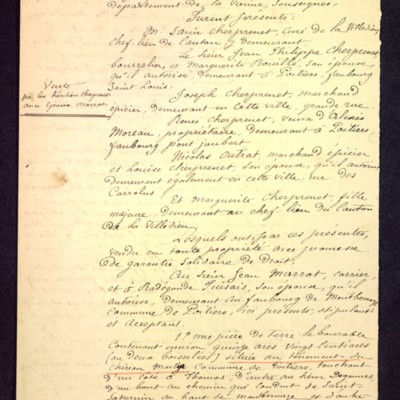 département de la Vienne, soussignés.
Furent présents:
M. Cherprenet, Curé de la Villedieu
chef-lieu de Canton y demeurant
Le sieur Jean Philippe Cherprenet
bourrelier, et Marguerite Bouillé son épouse
qu'il autorise, demeurant à Poitiers, faubourg
Saint Louis.
Joseph Cherprenet, marchand
épicier, demeurant en cette ville, grande rue
Renée Cherprenet, veuve d'Alexis
Moreau, propriétaire, demeurant à Poitiers,
faubourg Pont Joubert
Nicolas marchand épicier
et Louise Cherprenet, son épouse, qu'il autorise
demeurant également en cette ville rue des
Carrolus
Et Marguerite Cherprenet, fille
majeure demeurant au chef-lieu du Canton
de la Villedieu.
Lesquels ont par ces présentes,
vendu en toute propriété avec promesse
de garantie solidaire de droit
Au sieur Jean Marrot, carrier
et à Radégonde son épouse, qu'il
autorise, demeurant au faubourg de Montbernage
commune de Poitiers, ici présents, stipulant
et acceptant.
1° une pièce de terre labourable
contenant environ quinze ares vingt centiares
(ou deux boisselées) située au tènement du
commune de Poitiers, touchant
d'un côté à Thomas d'autre au sieur
d'un bout au chemin qui conduit de Saint
Saturnin au haut de Montbernage et d'autre
Vente
par les héritiers
aux époux Marrot